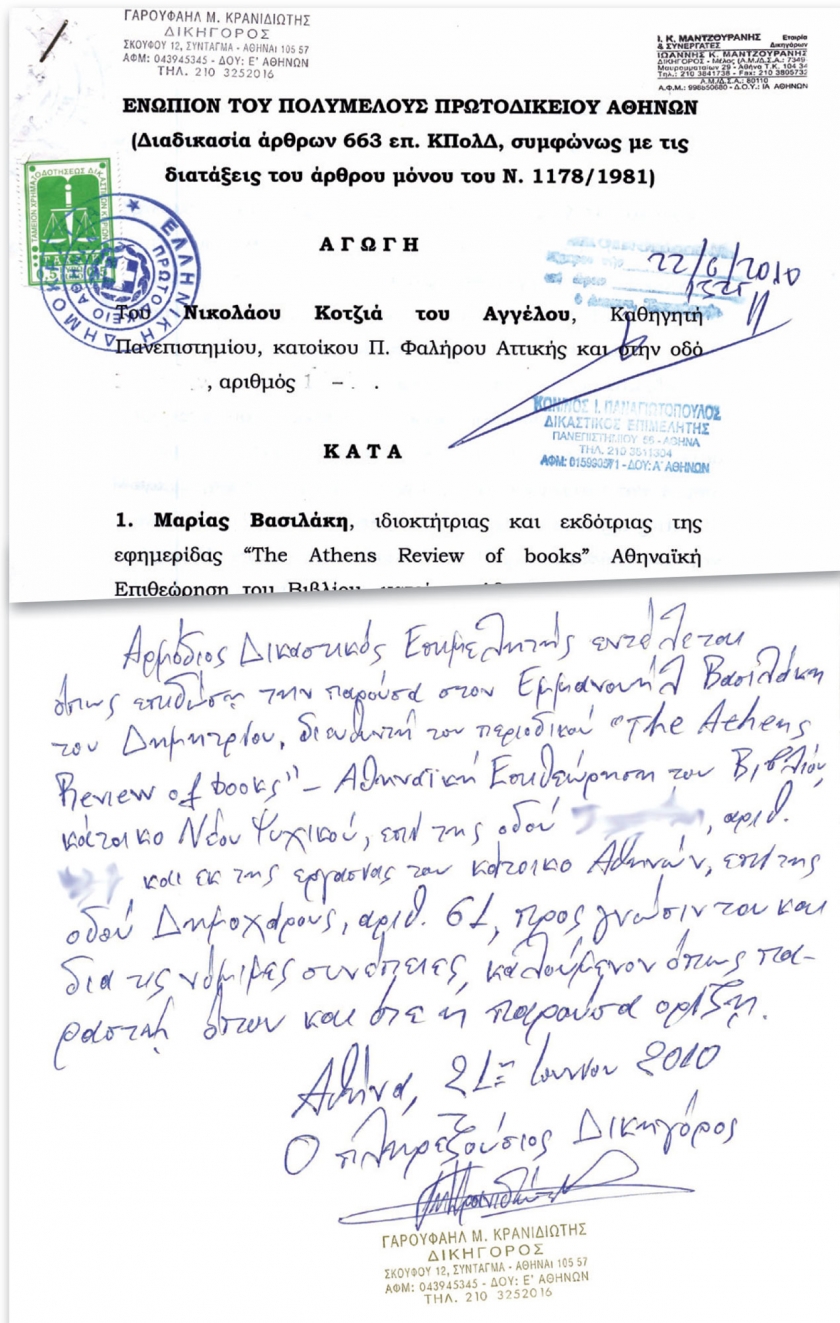 ΓΑΡΟΥΦΑΗΛ Μ. ΚΡΑΝΙΔΙΩΤΗΣ
ΔΙΚΗΓΟΡΟΣ
ΣΚΟΥΦΟΥ 12, ΣΥΝΤΑΓΜΑ - ΑΘΗΝΑΙ 105 57
ΑΦΜ: 043945345 - ΔΟΥ: Ε' ΑΘΗΝΩΝ
ΤΗΛ. 210 3252016
Ι. Κ. ΜΑΝΤΖΟΥΡΑΝΗΣ Εταιρία
& ΣΥΝΕΡΓΑΤΕΣ Δικηγόρων
ΙΩΑΝΝΗΣ Κ. ΜΑΝΤΖΟΥΡΑΝΗΣ
ΔΙΚΗΓΟΡΟΣ - Μέλος (Α.Μ./Δ.Σ.Α.: 7349
Μαυρομματαίων 29 - Αθήνα Τ.Κ. 104 34
Τηλ.: 210 3841738 - Fax: 210 3805732
Α.Μ./Δ.Σ.Α.: 80110
Α.Φ.Μ.: 998650680 - Δ.Ο.Υ.: ΙΑ ΑΘΗΝΩΝ
ΕΝΩΠΙΟΝ ΤΟΥ ΠΟΛΥΜΕΛΟΥΣ ΠΡΩΤΟΔΙΚΕΙΟΥ ΑΘΗΝΩΝ
(Διαδικασία άρθρων 663 επ. ΚΠολΔ, συμφώνως με τις
διατάξεις του άρθρου μόνου του Ν. 1178/1981)
ΕΛΛΗΝΙΚΗ ΔΗΜΟ
ΠΡΩΤΟΔΙΚΕΙΟ ΑΘ
ΑΓΩΓΗ
22/6/2010
Του Νικολάου Κοτζιά του Αγγέλου, Καθηγητή
Πανεπιστημίου, κατοίκου Π. Φαλήρου Αττικής και στην οδό
, αριθμός
ΔΙΚΑΣΤΙΚΟΣ ΕΠΙΜΕΛΗΤΗΣ
ΠΑΝΕΠΙΣΤΗΜΙΟΥ 56 - ΑΘΗΝΑ
ΚΑΤΑ
1. Μαρίας Βασιλάκη, ιδιοκτήτριας και εκδότριας της
εφημερίδας “The Athens Review of books” Αθηναϊκή
Επιθεώρηση του Βιβλίου,
Αρμόδιος Δικαστικός Επιμελητής εντέλεται
όπως επιδώση την παρούσα στον Εμμανουήλ Βασιλάκη
του Δημητρίου, διευθυντή του περιοδικού “The Athens
Review of books” – Αθηναϊκή Επιθεώρηση του Βιβλίου,
κάτοικο Νέου Ψυχικού, επί της οδού , αριθ.
και εκ της εργασίας του κάτοικο Αθηνών, επί της
οδού Δημοχάρους, αριθ. 61, προς γνώσιν του και
δια τις νόμιμες συνέπειες, καλούμενον όπως πα-
ραστή όπου και ότε η παρούσα ορίζη.
Αθήνα, 21η Ιουνίου 2010
Ο πληρεξούσιος Δικηγόρος
ΓΑΡΟΥΦΑΗΛ Μ. ΚΡΑΝΙΔΙΩΤΗΣ
ΔΙΚΗΓΟΡΟΣ
ΣΚΟΥΦΟΥ 12, ΣΥΝΤΑΓΜΑ - ΑΘΗΝΑΙ 105 57
ΑΦΜ: 043945345 - ΔΟΥ: Ε' ΑΘΗΝΩΝ
ΤΗΛ. 210 3252016